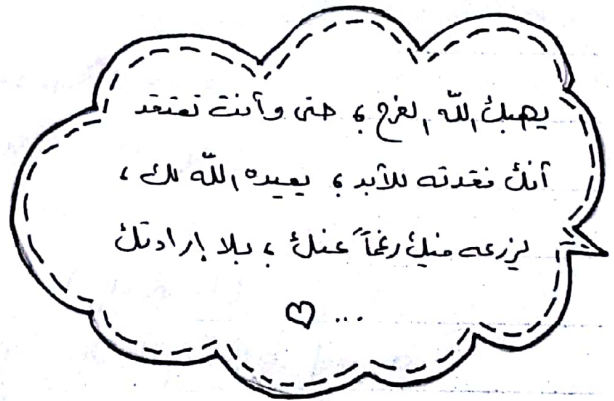 يهبك الله الفرح ، حتى وأنت تعتقد
أنك فقدته للأبد ، يعيده الله لك ،
ليزرعه فيك رغماً عنك ، بلا إرادتك
... ♡